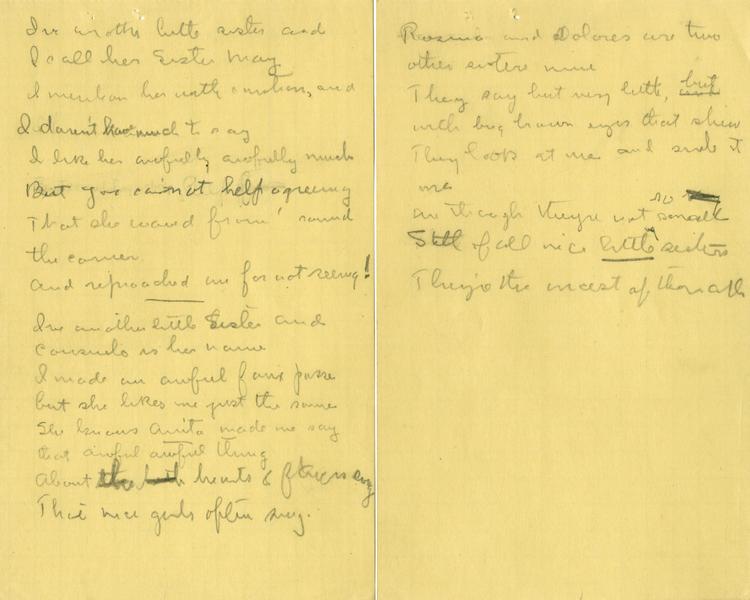 I've another little sister and
I call her Sister May
I mention her with emotion, and
I daren't have much to say
I like her awfully, awfully much
But you cannot help agreeing
That she waved from 'round
the corner
And reproached me for not seeing!
I've another little Sister and
Consuelo is her name
I made an awful faux passe
but she likes me just the same
She knows Anita made me say
that awful awful thing
About the hearts &
That nice girls often sing.
Rosina and Dolores are two
other sisters mine
They say but very little, but
with big brown eyes that shine
They look at me and smile at
me
as though they're not so small
Still of all nice little sisters
They're the nicest of them all